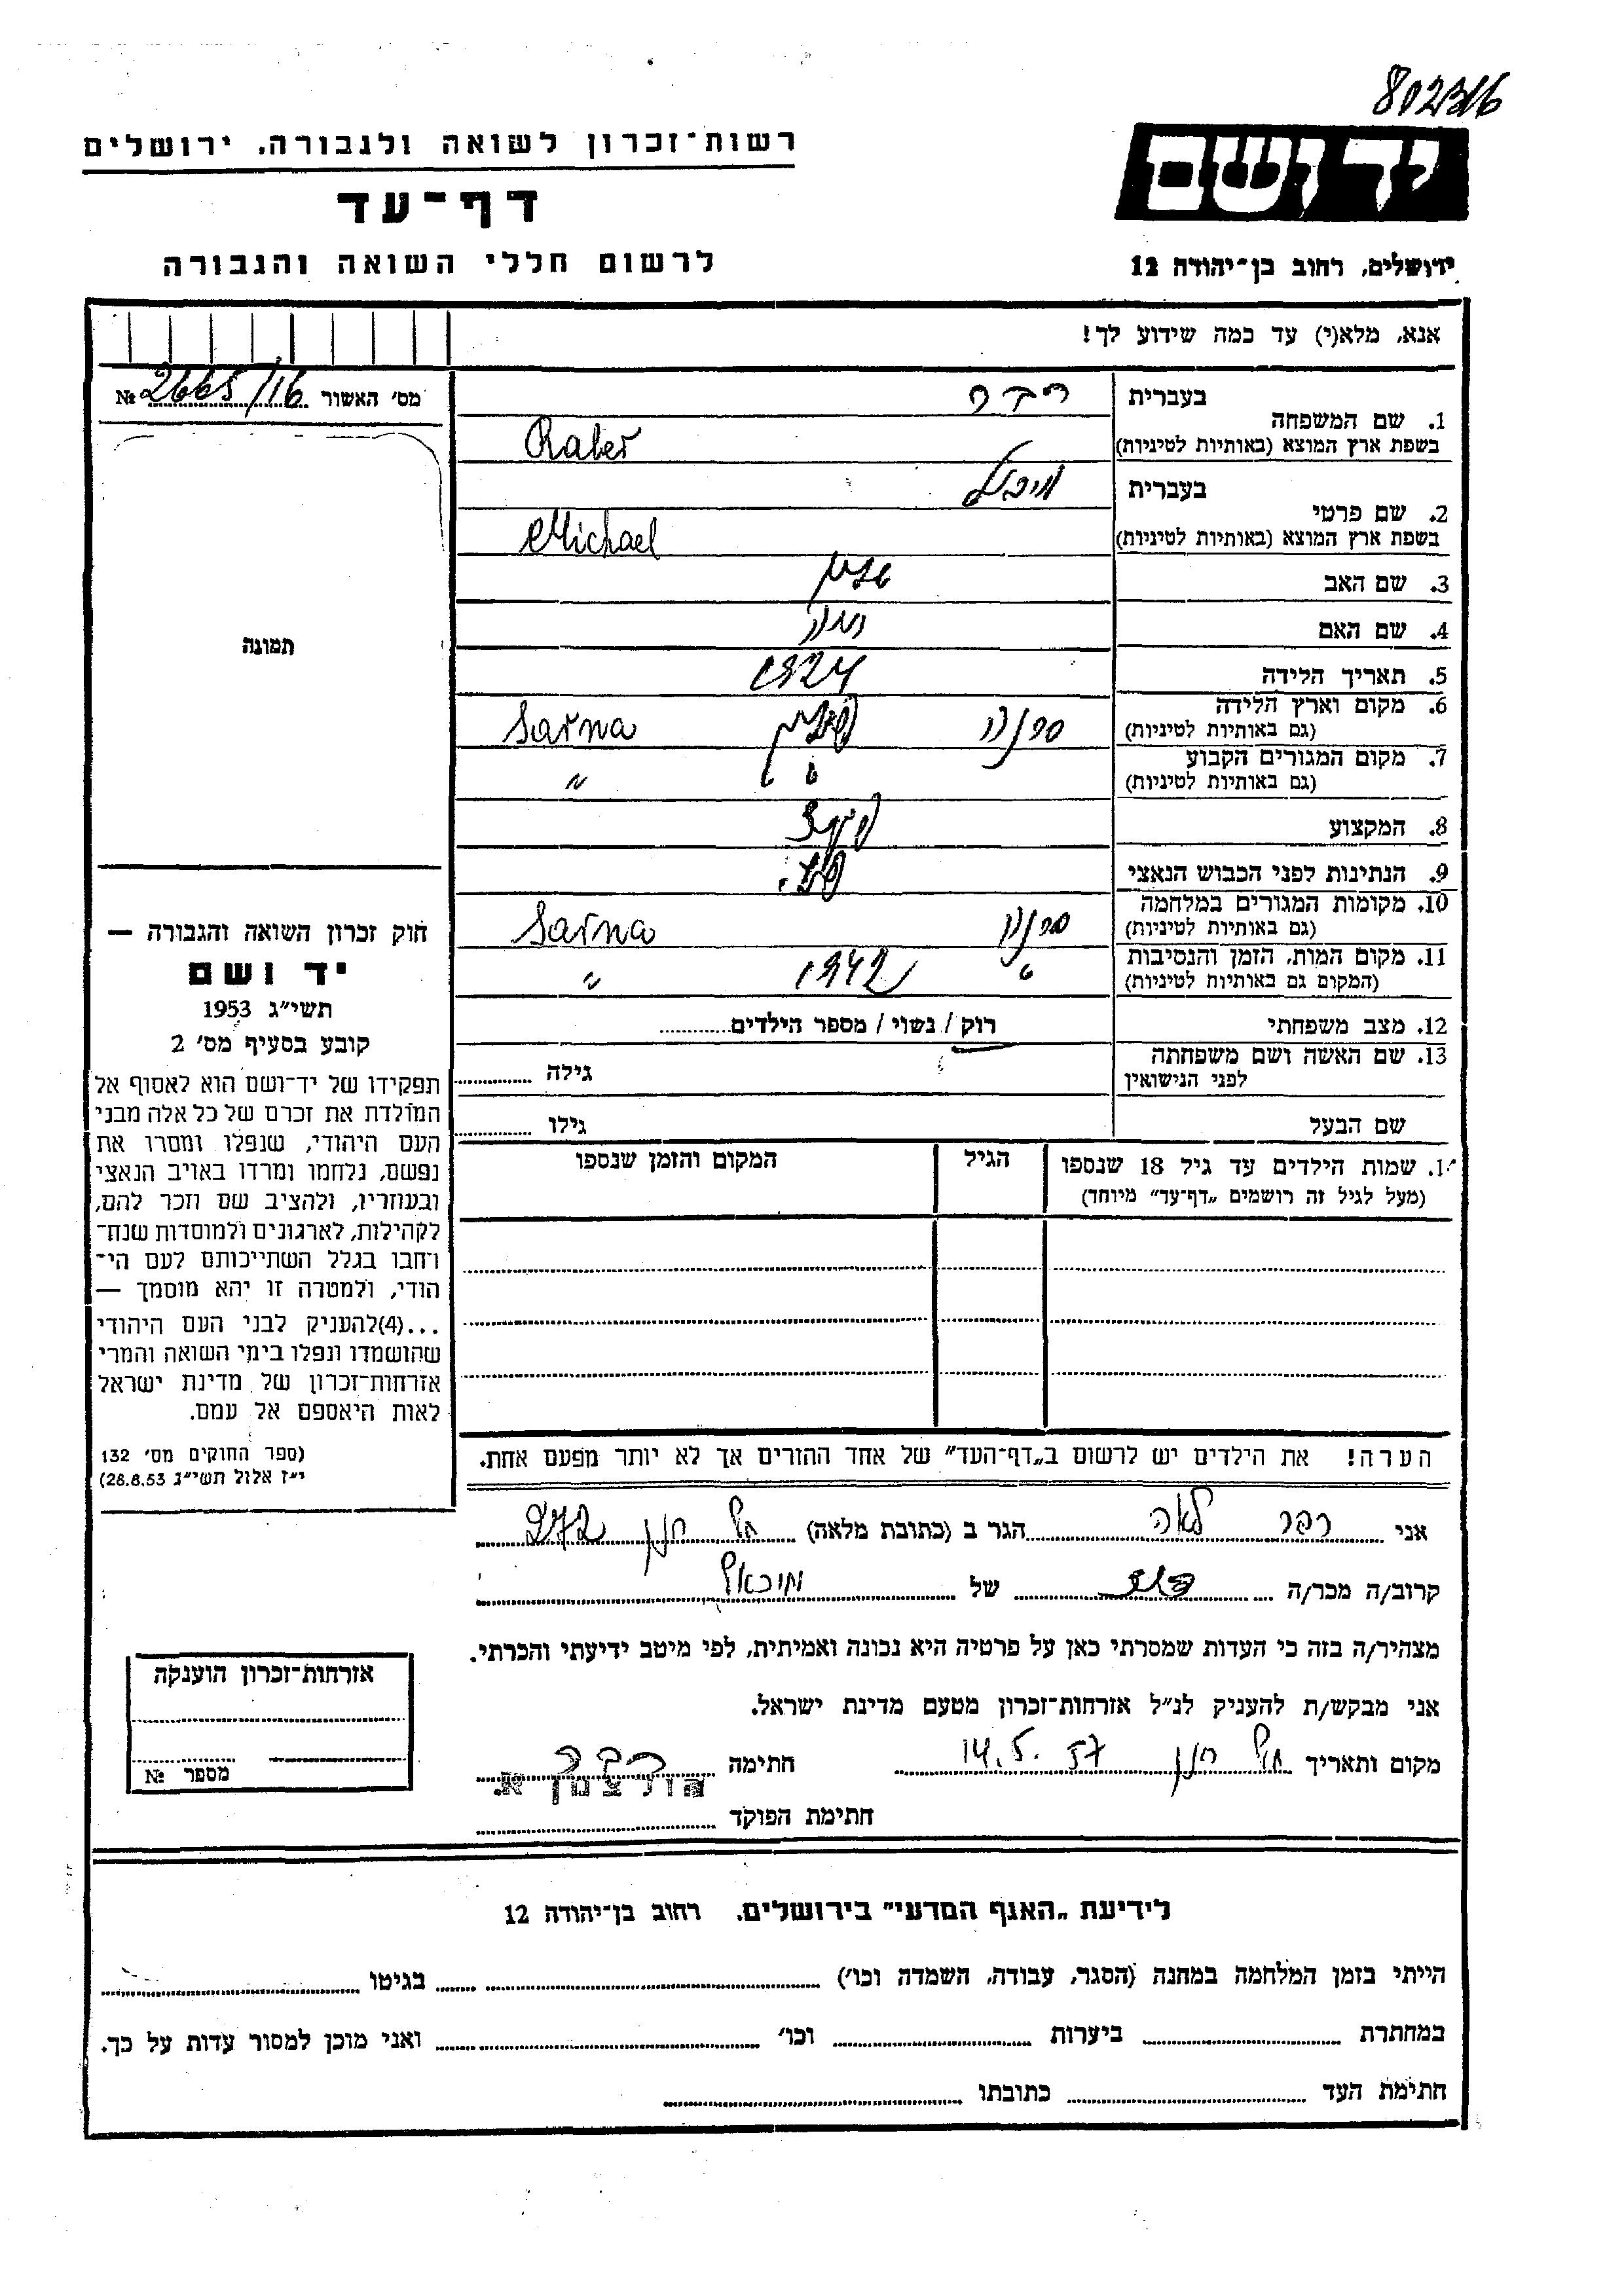 802316
יד ושם
ירושלים, רחוב בן־יהודה 12
רשות־זכרון לשואה ולגבורה, ירושלים
דף־עד
לרשום חללי השואה והגבורה
אנא, מלא(י) עד כמה שידוע לך!
מס׳ האשור 2665/16 №
תמונה
1. שם המשפחה בעברית רבר
בשפת ארץ המוצא (באותיות לטיניות) Raber
2. שם פרטי בעברית
בשפת ארץ המוצא (באותיות לטיניות) Michael
3. שם האב
4. שם האם
5. תאריך הלידה 1924
6. מקום וארץ הלידה סרנה פולין Sarna
(גם באותיות לטיניות)
7. מקום המגורים הקבוע " " "
(גם באותיות לטיניות)
8. המקצוע
9. הנתינות לפני הכבוש הנאצי
10. מקומות המגורים במלחמה סרנה Sarna
(גם באותיות לטיניות)
11. מקום המות, הזמן והנסיבות " 1942 "
(המקום גם באותיות לטיניות)
12. מצב משפחתי רוק / נשוי / מספר הילדים
13. שם האשה ושם משפחתה גילה
לפני הנישואין
שם הבעל גילו
1. שמות הילדים עד גיל 18 שנספו הגיל המקום והזמן שנספו
(מעל לגיל זה רושמים „דף־עד״ מיוחד)
הערה! את הילדים יש לרשום ב„דף־העד״ של אחד ההורים אך לא יותר מפעם אחת.
חוק זכרון השואה והגבורה —
יד ושם
תשי״ג 1953
קובע בסעיף מס׳ 2
תפקידו של יד־ושם הוא לאסוף אל
המולדת את זכרם של כל אלה מבני
העם היהודי, שנפלו ומסרו את
נפשם, נלחמו ומרדו באויב הנאצי
ובעוזריו, ולהציב שם וזכר להם,
לקהילות, לארגונים ולמוסדות שנח־
רחבו בגלל השתייכותם לעם הי־
הודי, ולמטרה זו יהא מוסמך —
...(4)להעניק לבני העם היהודי
שהושמדו ונפלו בימי השואה והמרי
אזרחות־זכרון של מדינת ישראל
לאות היאספם אל עמם.
(ספר החוקים מס׳ 132
י״ז אלול תשי״ג 28.8.53)
אני רבר לאה הגר ב (כתובת מלאה) תל חנן 272
קרוב/ה מכר/ה של מיכאל
מצהיר/ה בזה כי העדות שמסרתי כאן על פרטיה היא נכונה ואמיתית, לפי מיטב ידיעתי והכרתי.
אני מבקש/ת להעניק לנ״ל אזרחות־זכרון מטעם מדינת ישראל.
מקום ותאריך תל חנן 14.5.57 חתימה רבר
הולצמן א.
חתימת הפוקד
אזרחות־זכרון הוענקה
מספר №
לידיעת „האגף המדעי״ בירושלים, רחוב בן־יהודה 12
הייתי בזמן המלחמה במחנה (הסגר, עבודה, השמדה וכו׳) בגיטו
במחתרת ביערות וכו׳ ואני מוכן למסור עדות על כך.
חתימת העד כתובתו